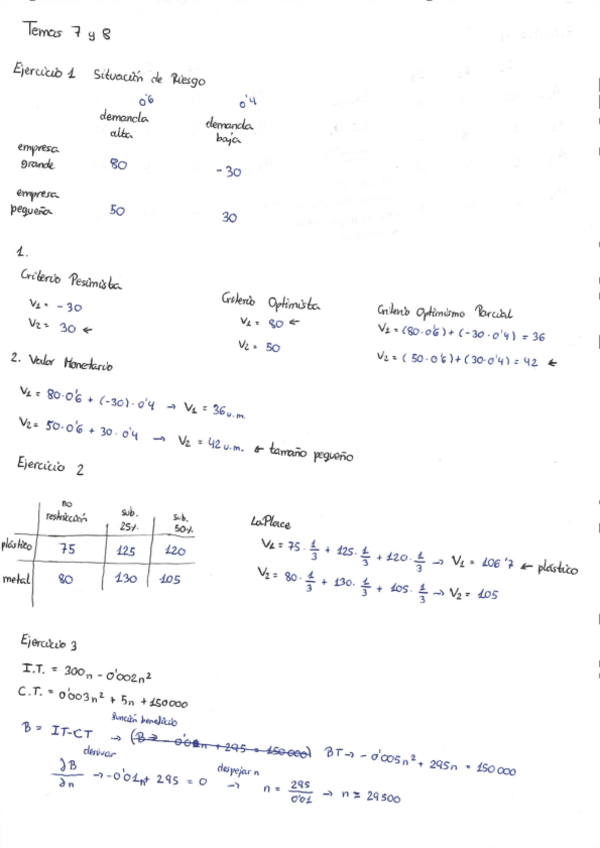 Temas 7 y 8
Ejercicio 1 Situación de Riesgo
0'6 0'4
demanda alta demanda baja
empresa grande 80 -30
empresa pequeña 50 30
1.
Criterio Pesimista
V₁ = -30
V₂ = 30 ←
Criterio Optimista
V₁ = 80 ←
V₂ = 50
Criterio Optimismo Parcial
V₁ = (80·0'6) + (-30·0'4) = 36
V₂ = (50·0'6) + (30·0'4) = 42 ←
2. Valor Monetario
V₁ = 80·0'6 + (-30)·0'4 → V₁ = 36 u.m.
V₂ = 50·0'6 + 30·0'4 → V₂ = 42 u.m. ← tamaño pequeño
Ejercicio 2
no restricción sub. 25% sub. 50%
plástico 75 125 120
metal 80 130 105
LaPlace
V₁ = 75·1/3 + 125·1/3 + 120·1/3 → V₁ = 106'7 ← plástico
V₂ = 80·1/3 + 130·1/3 + 105·1/3 → V₂ = 105
Ejercicio 3
I.T. = 300n - 0'002n²
C.T. = 0'003n² + 5n + 150000
función beneficio
B = IT-CT → (B = -0'01n + 295 = 150000) BT → -0'005n² + 295n = 150000
derivar despejar n
∂B/∂n → -0'01n + 295 = 0 → n = 295/0'01 → n = 29500